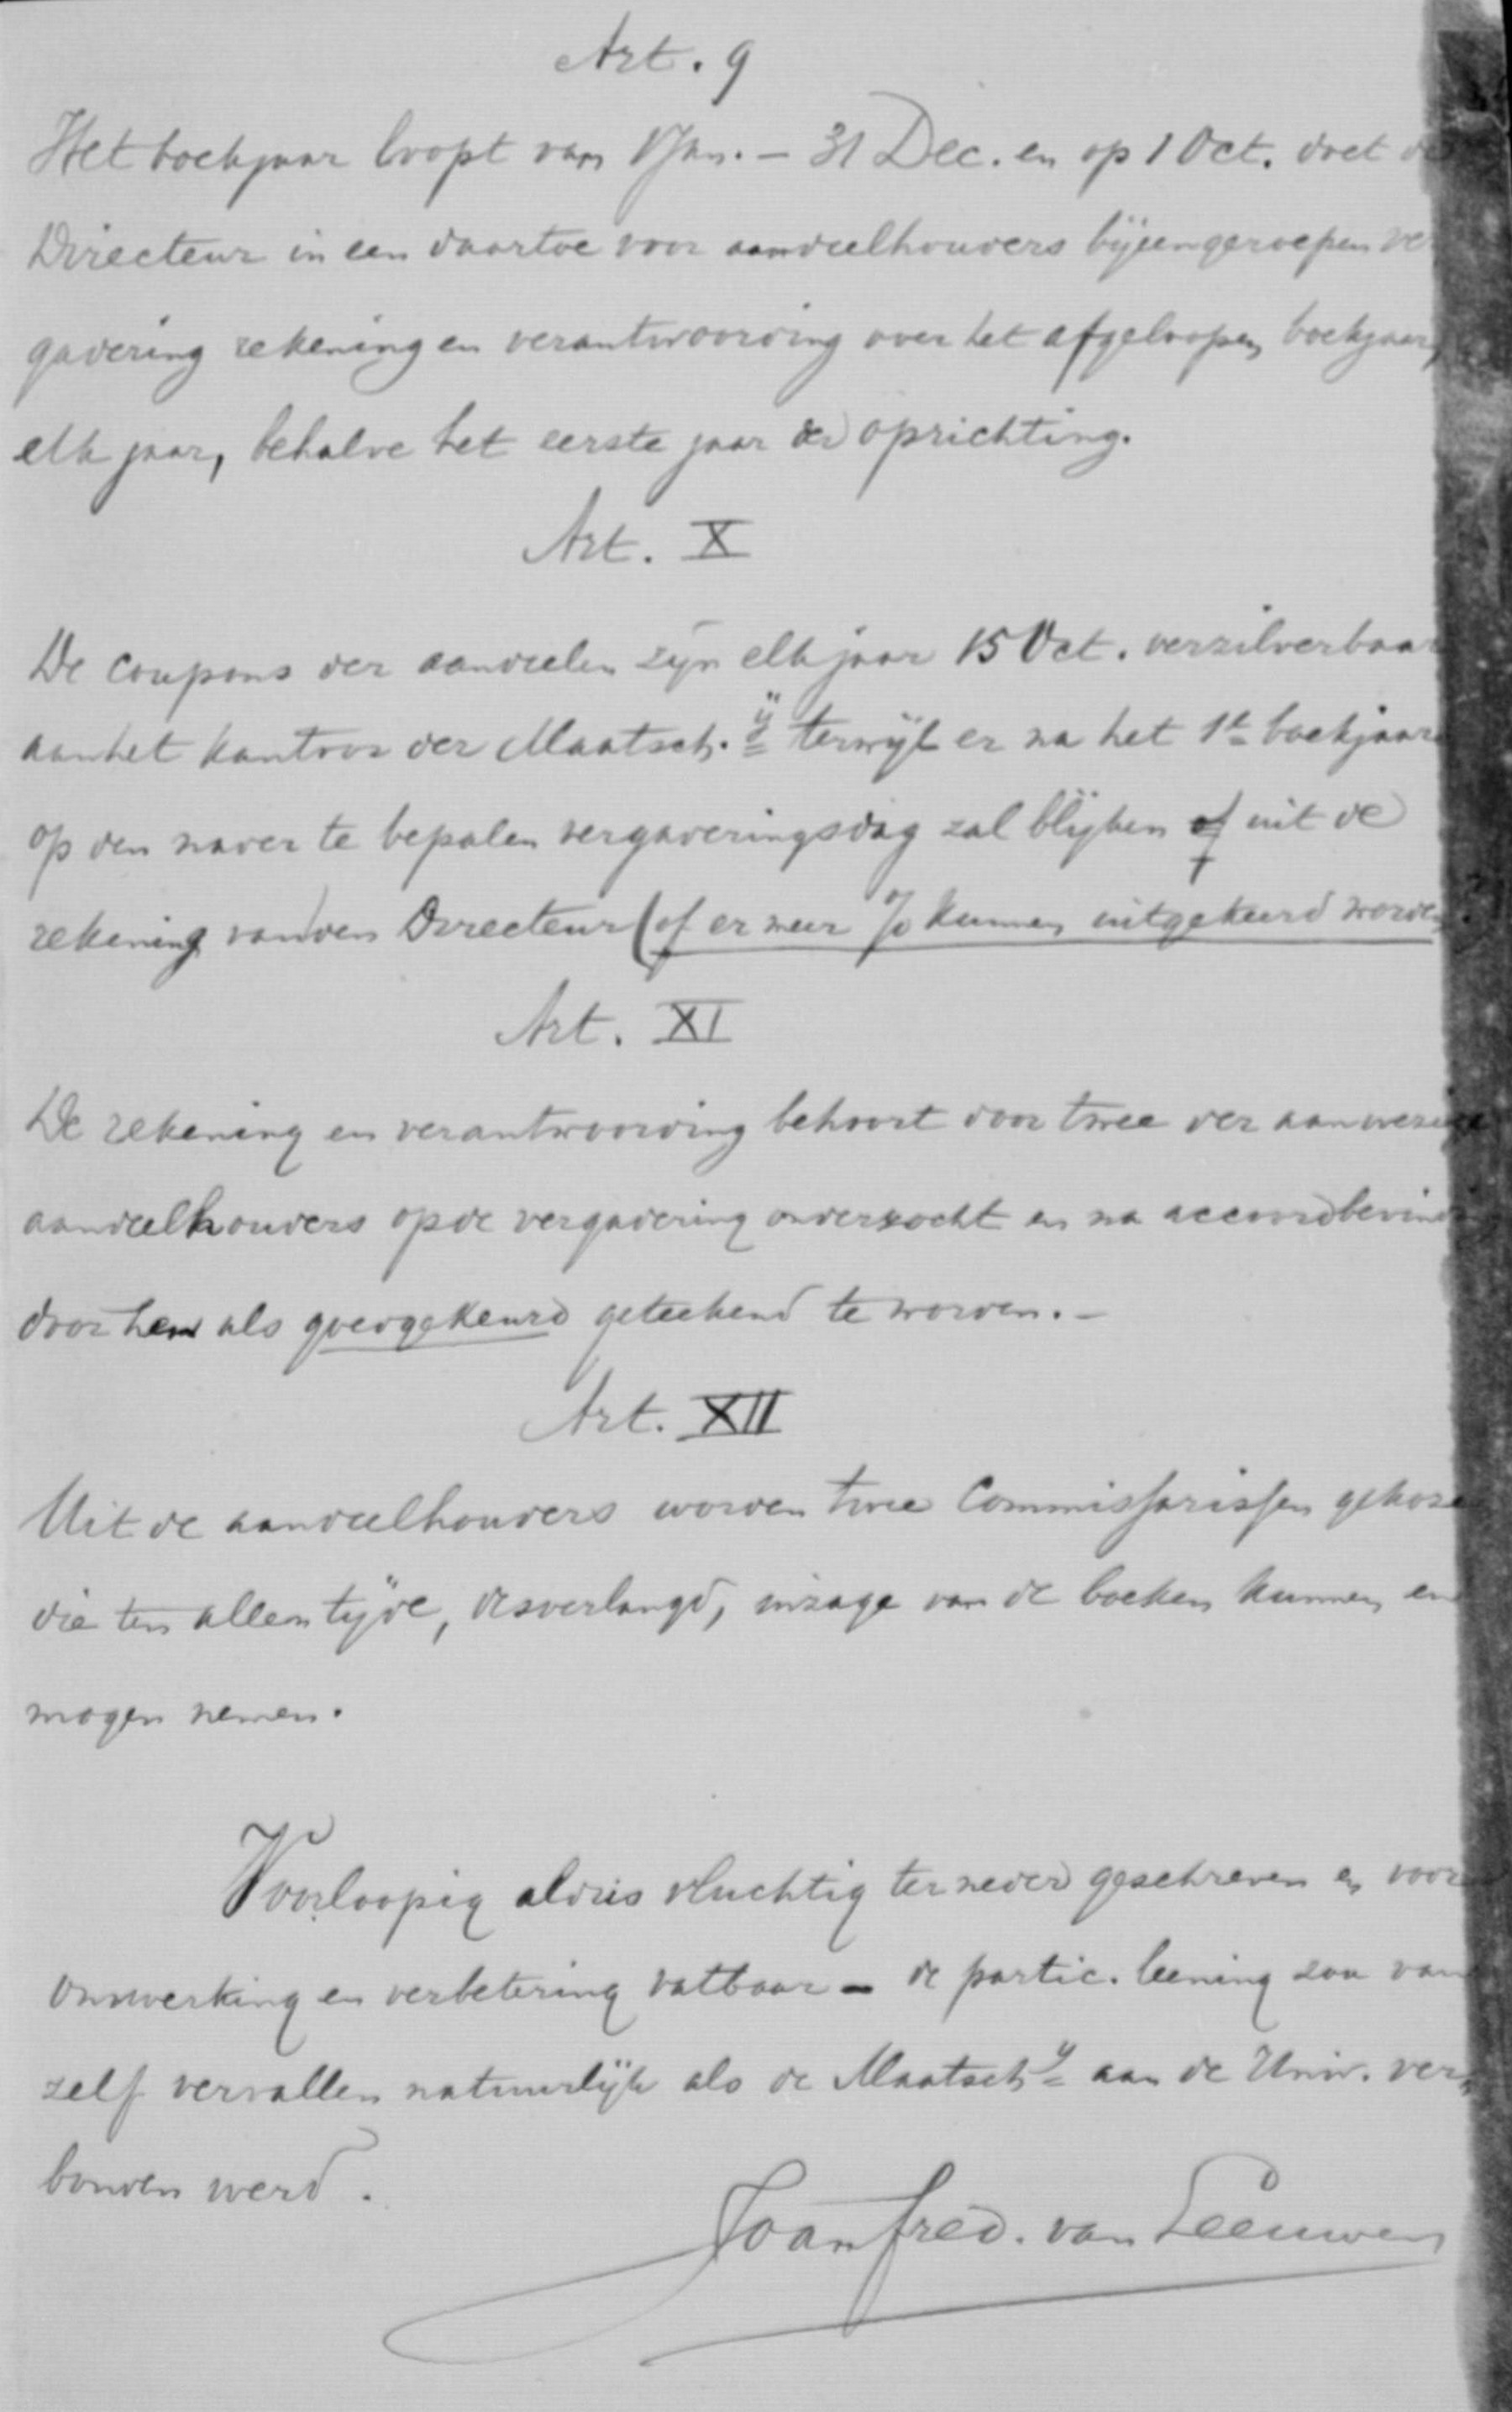 Art. 9
Het boekjaar loopt van 1 Jan. – 31 Dec. en op 1 Oct. doet de
Directeur in een daartoe voor aandeelhouders bijeengeroepen ver
gadering rekening en verantwoording over het afgeloopen boekjaar,
elk jaar, behalve het eerste jaar der oprichting.
Art. X
De coupons der aandeelen zijn elk jaar 15 Oct. verzilverbaar
aan het kantoor der Maatsch.ij terwijl er na het 1e boekjaar
op den nader te bepalen vergaderingsdag zal blijken uit de
rekening van den Directeur (of er meer % kunnen uitgekeerd worden
Art. XI
De rekening en verantwoording behoort door twee der aanwezige
aandeelhouders op de vergadering onderzocht en na accoordbevinding
door hen als goedgekeurd geteekend te worden. –
Art. XII
Uit de aandeelhouders worden twee Commissarissen gekozen
die ten allen tijde, desverlangd, inzage van de boeken kunnen en
mogen nemen.
Voorloopig aldus vluchtig ter neder geschreven en voor
omwerking en verbetering vatbaar – de partic. leening zou van
zelf vervallen natuurlijk als de Maatschy aan de Univ. ver-
bonden werd.
Joan Fred. van Leeuwen